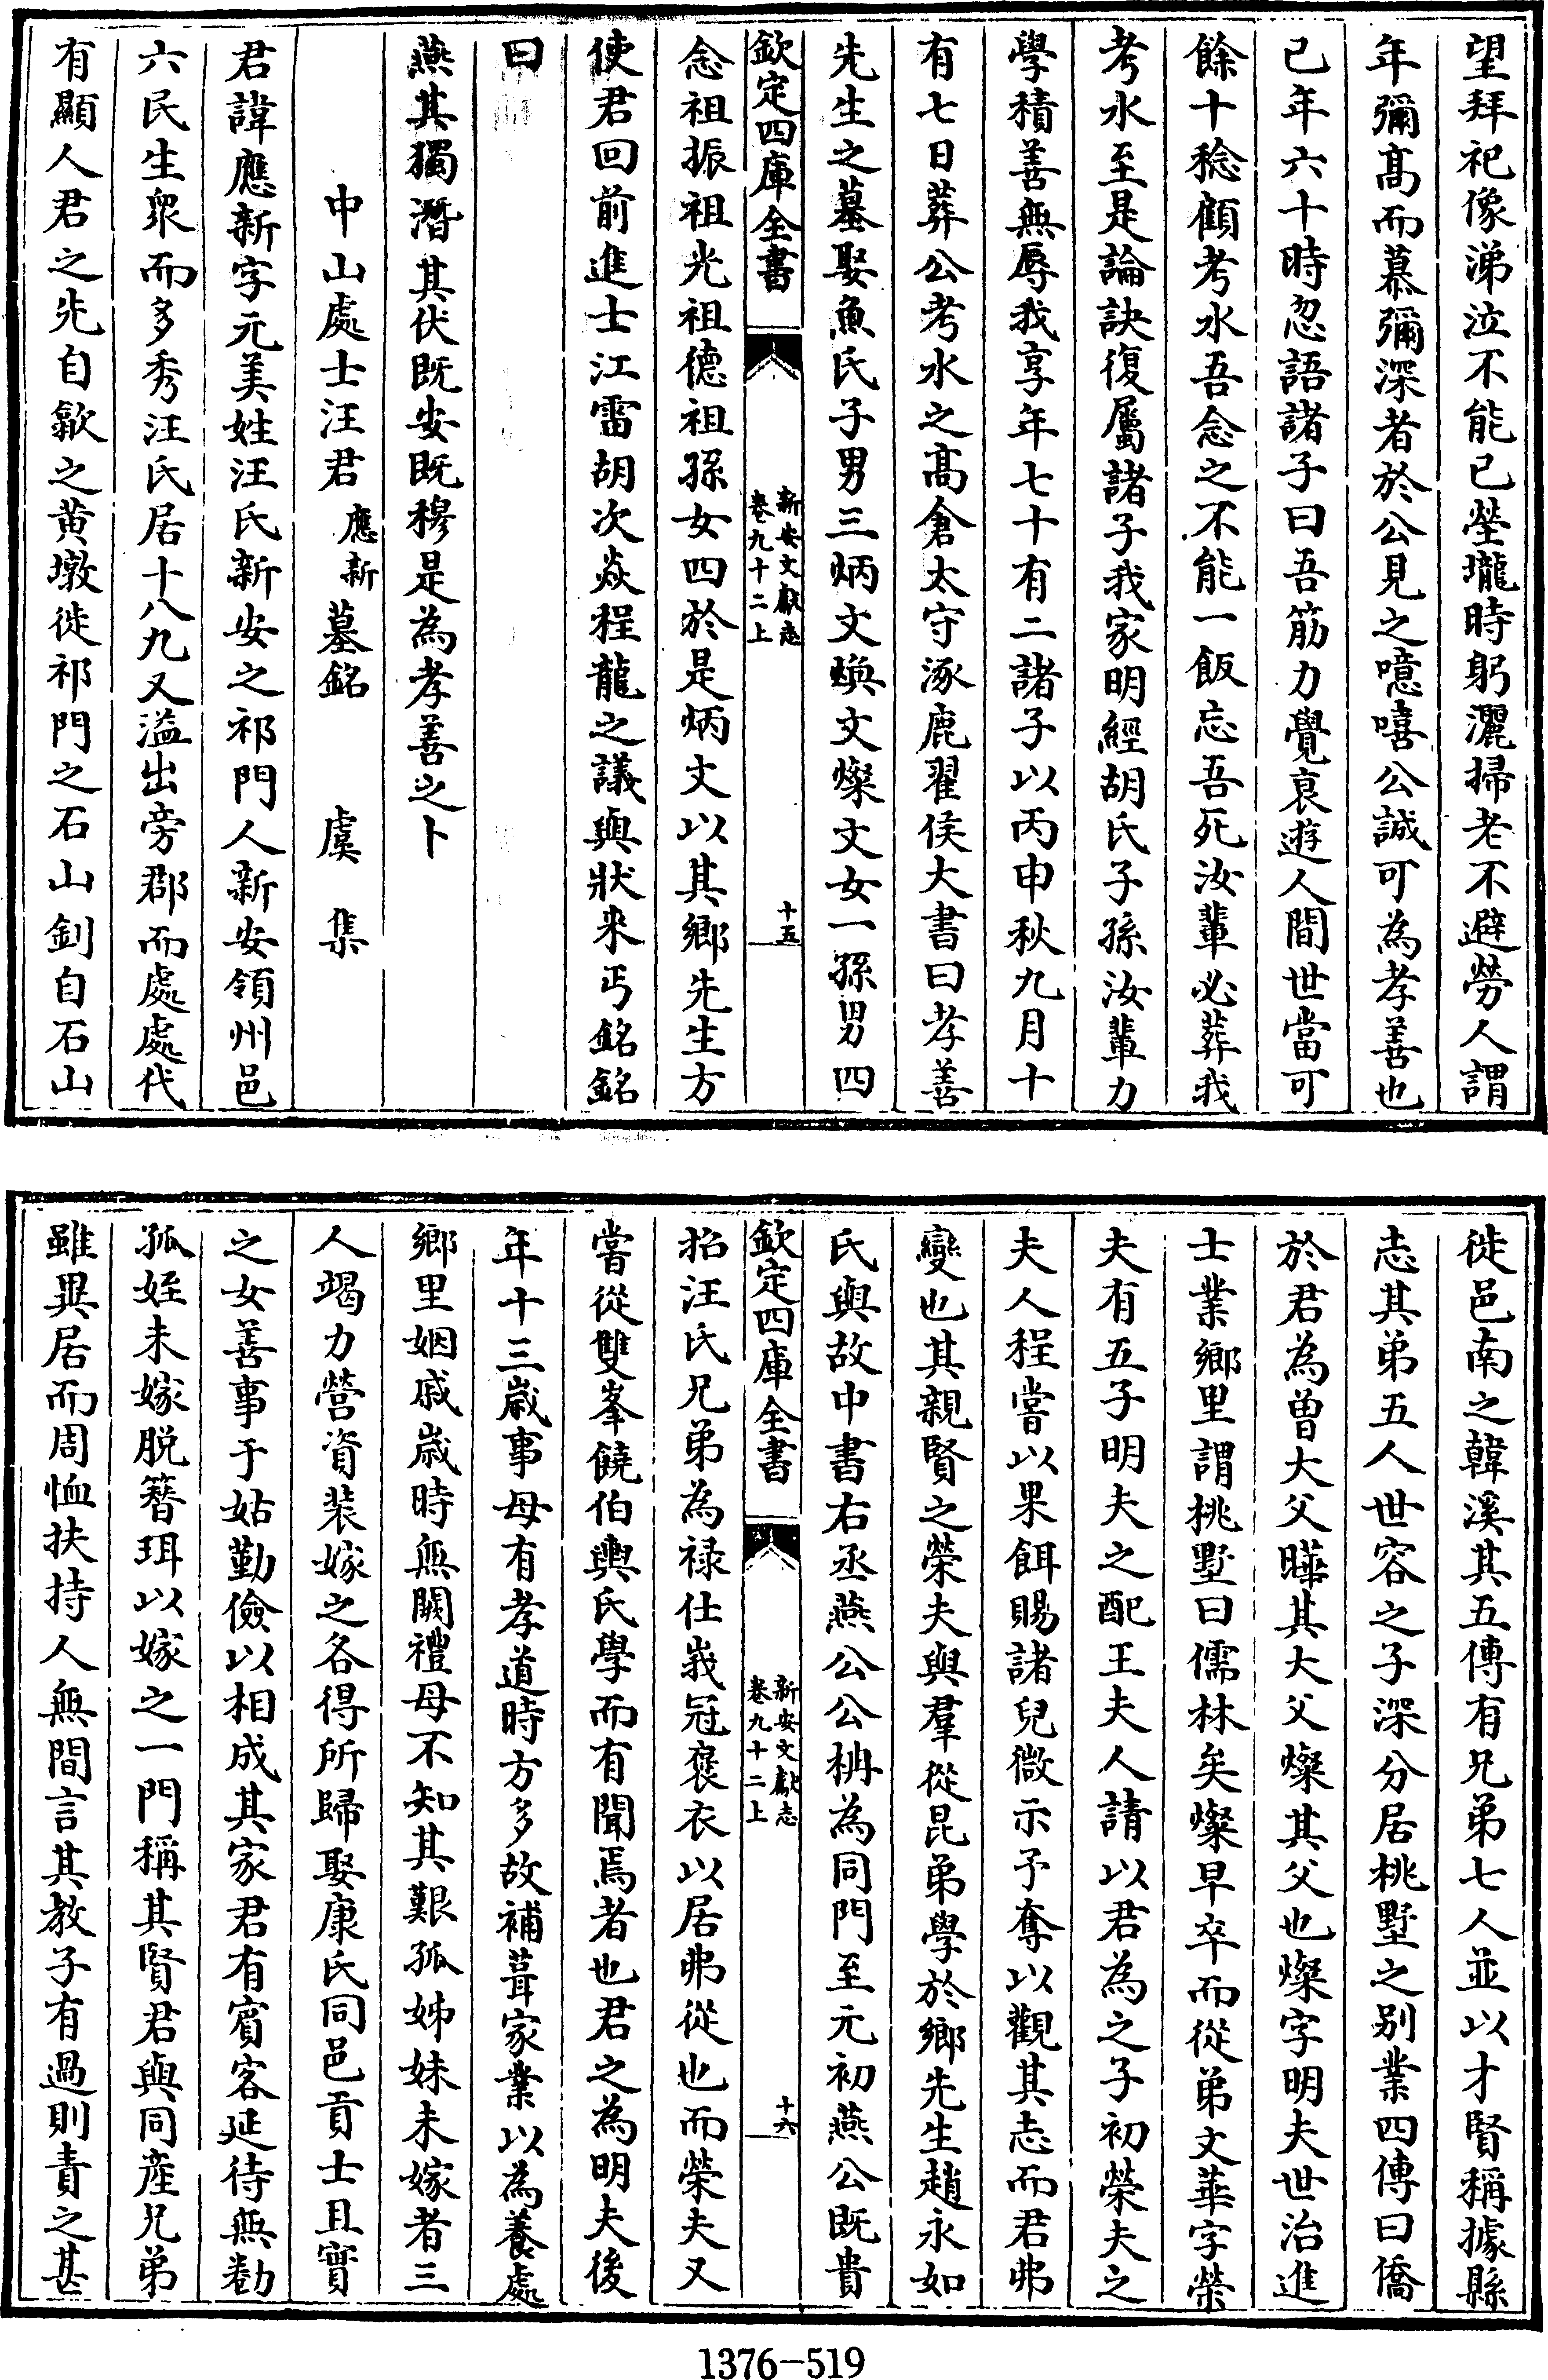 望拜祀像涕泣不能已塋壠時躬灑掃老不避勞人謂
年彌髙而慕彌深者於公見之噫嘻公誠可為孝善也
已年六十時忽語諸子曰吾筋力覺衰遊人間世當可
餘十稔顧考水吾念之不能一飯忘吾死汝輩必葬我
考水至是論訣復屬諸子我家明經胡氏子孫汝輩力
學積善無辱我享年七十有二諸子以丙申秋九月十
有七日葬公考水之髙倉太守涿鹿翟侯大書曰孝善
先生之墓娶魚氏子男三炳文煥文燦文女一孫男四
欽定四庫全書
新安文獻志
卷九十二上
十五
念祖振祖光祖德祖孫女四於是炳文以其鄉先生方
使君回前進士江雷胡次焱程龍之議與狀來丐銘銘
曰
燕其獨潛其伏既安既穆是為孝善之卜
中山處士汪君應新墓銘 虞集
君諱應新字元美姓汪氏新安之祁門人新安領州邑
六民生衆而多秀汪氏居十八九又溢出旁郡而處處代
有顯人君之先自歙之黄墩徙祁門之石山釗自石山
徙邑南之韓溪其五傳有兄弟七人並以才賢稱據縣
志其弟五人世容之子深分居桃墅之别業四傳曰僑
於君為曾大父曄其大父燦其父也燦字明夫世治進
士業鄉里謂桃墅曰儒林矣燦早卒而從弟文華字榮
夫有五子明夫之配王夫人請以君為之子初榮夫之
夫人程嘗以果餌賜諸兒微示予奪以觀其志而君弗
變也其親賢之榮夫與羣從昆弟學於鄉先生趙永如
氏與故中書右丞燕公公楠為同門至元初燕公既貴
欽定四庫全書
新安文獻志
卷九十二上
十六
招汪氏兄弟為禄仕峩冠褒衣以居弗從也而榮夫又
嘗從雙峯饒伯輿氏學而有聞焉者也君之為明夫後
年十三歳事母有孝道時方多故補葺家業以為養處
鄉里姻戚歳時無闕禮母不知其艱孤姊妹未嫁者三
人竭力營資装嫁之各得所歸娶康氏同邑貢士且實
之女善事于姑勤儉以相成其家君有賓客延待無勌
孤姪未嫁脱簪珥以嫁之一門稱其賢君與同産兄弟
雖異居而周恤扶持人無間言其教子有過則責之甚
1376-519